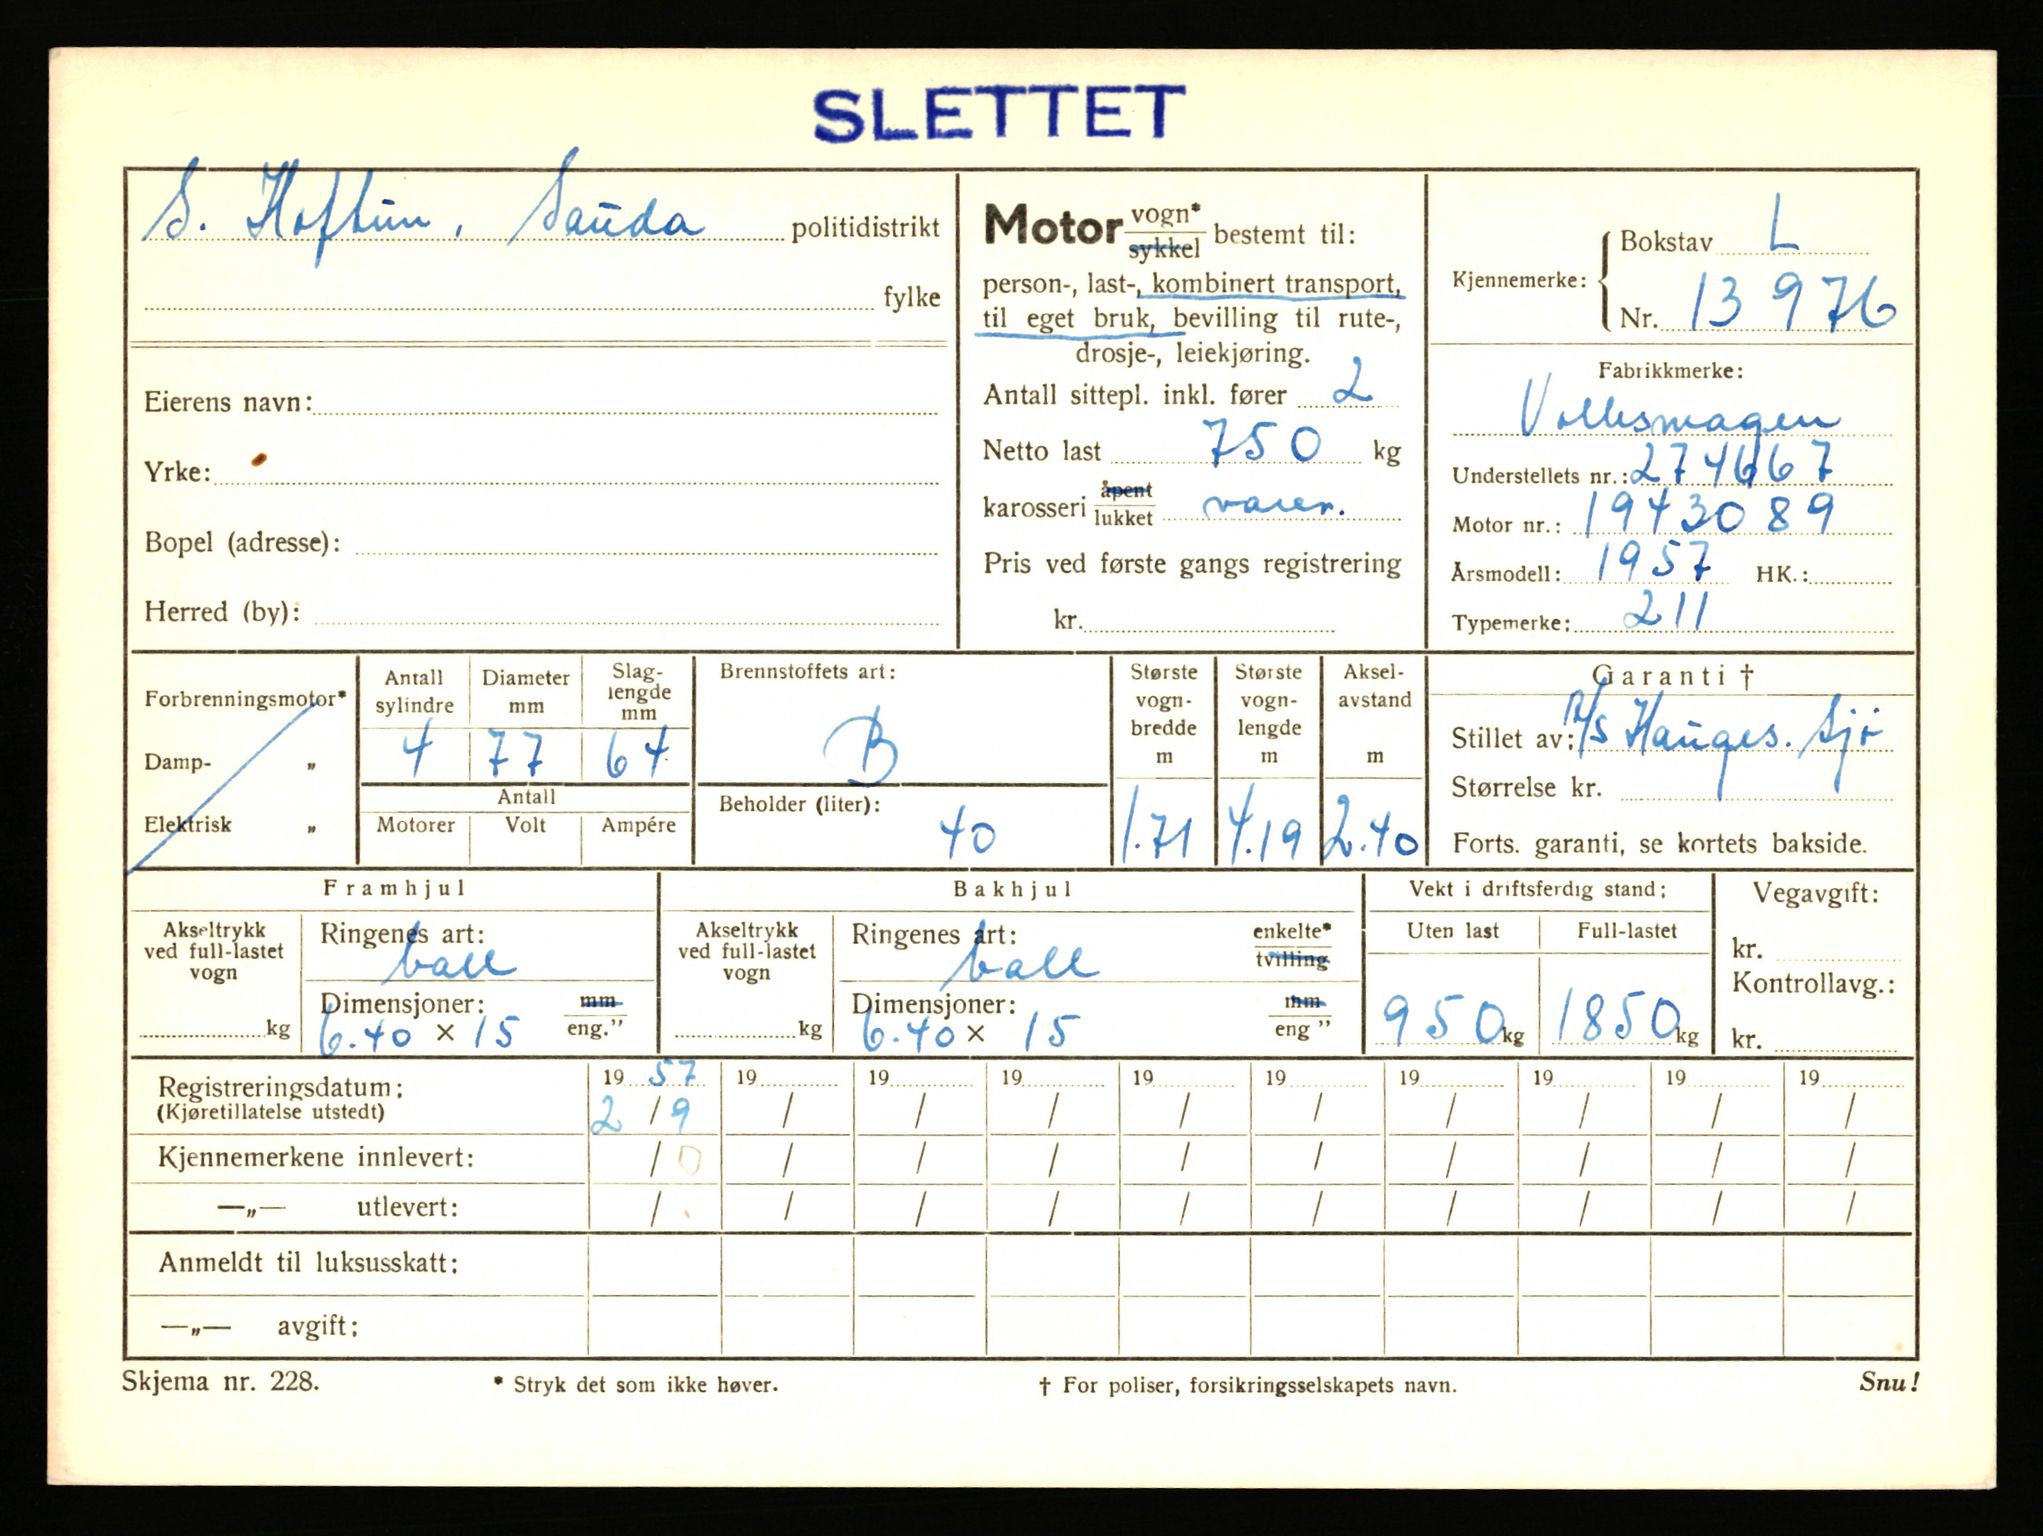 SLETTET
S. Hoftun, Sauda politidistrikt
fylke
Eierens navn:
Yrke:
Bopel (adresse):
Herred (by):
Motor vogn* sykkel bestemt til:
person-, last-, kombinert transport,
til eget bruk, bevilling til rute-,
drosje-, leiekjøring.
Antall sittepl. inkl. fører 2
Netto last 750 kg
karosseri åpent lukket varev.
Pris ved første gangs registrering
kr.
Kjennemerke: Bokstav L
Nr. 13976
Fabrikkmerke:
Volkswagen
Understellets nr.: 274667
Motor nr.: 1943089
Årsmodell: 1957 HK.:
Typemerke: 211
Forbrenningsmotor*
Damp- „
Elektrisk „
Antall sylindre
Diameter mm
Slag-lengde mm
4 77 64
Antall
Motorer Volt Ampére
Brennstoffets art:
B
Beholder (liter):
40
Største vogn-bredde m
1.71
Største vogn-lengde m
4.19
Aksel-avstand m
2.40
Garanti †
Stillet av: A/S Hauges. Sjø
Størrelse kr.
Forts. garanti, se kortets bakside.
Framhjul
Akseltrykk ved full-lastet vogn
kg
Ringenes art:
ball
Dimensjoner: mm
6.40 × 15 eng.”
Bakhjul
Akseltrykk ved full-lastet vogn
kg
Ringenes art: enkelte*
ball tvilling
Dimensjoner: mm
6.40 × 15 eng ”
Vekt i driftsferdig stand:
Uten last Full-lastet
950 kg 1850 kg
Vegavgift:
kr.
Kontrollavg.:
kr.
Registreringsdatum: 19 57 19 19 19 19 19 19 19 19 19
(Kjøretillatelse utstedt) 2 / 9 / / / / / / / / /
Kjennemerkene innlevert: / / / / / / / / / /
—„— utlevert: / / / / / / / / / /
Anmeldt til luksusskatt:
—„— avgift:
Skjema nr. 228. * Stryk det som ikke høver. † For poliser, forsikringsselskapets navn. Snu!